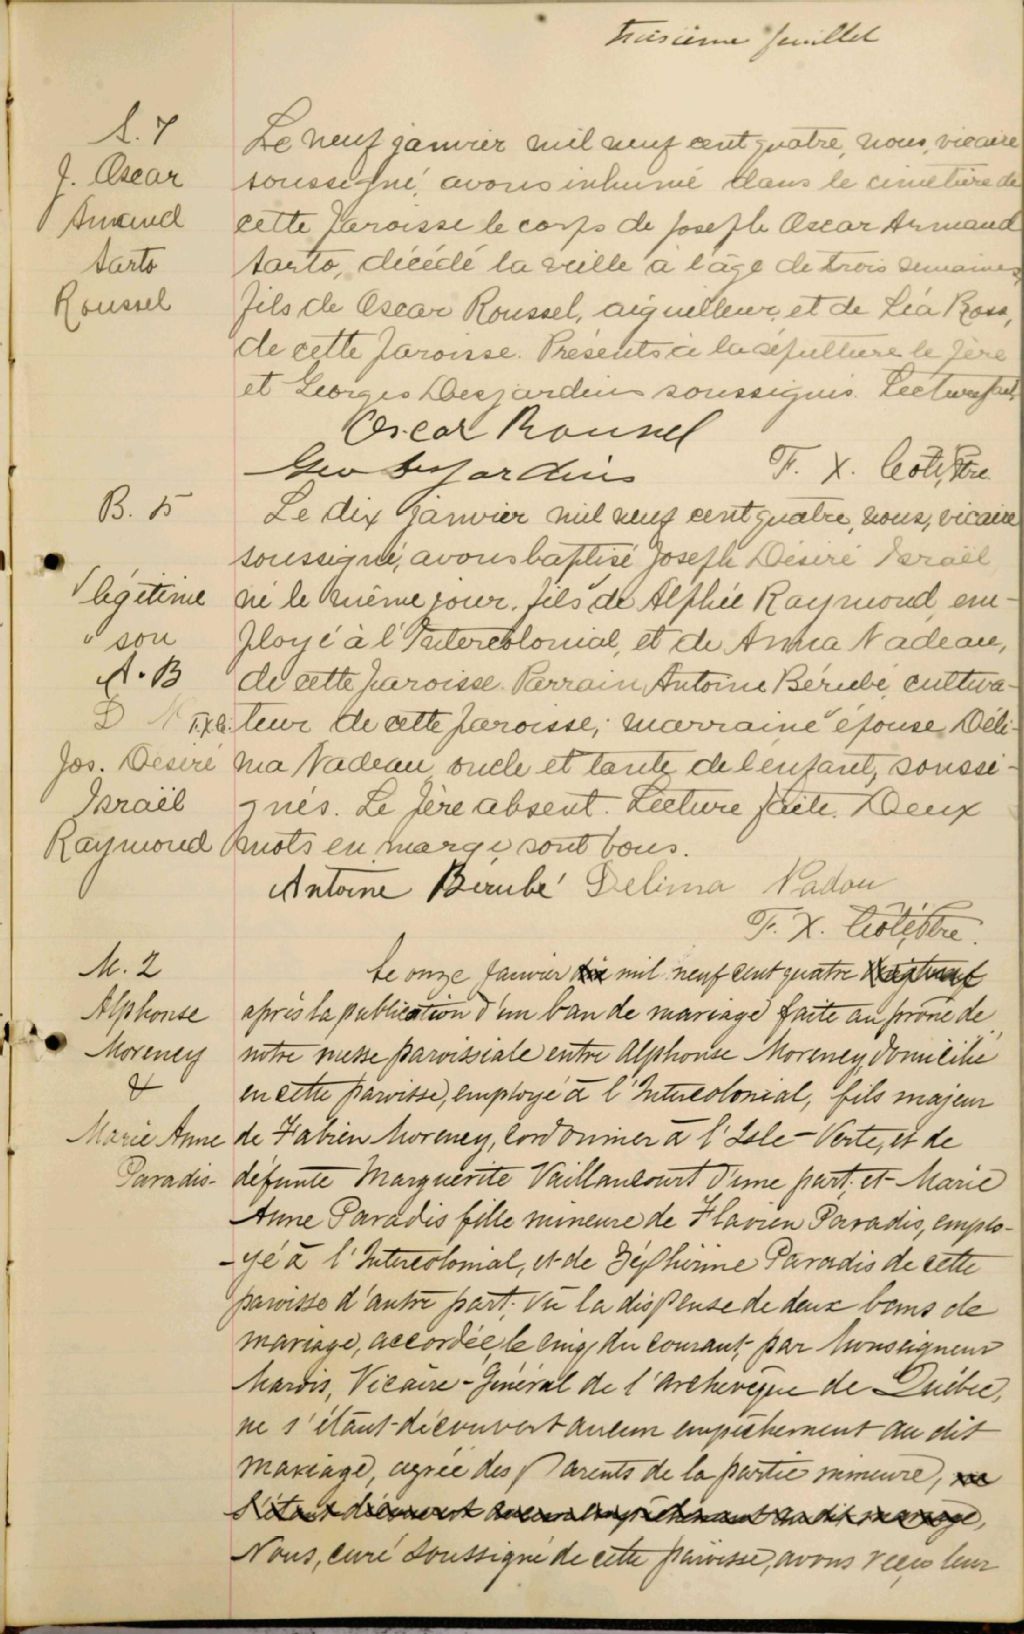 troisième feuillet
S. 7
J. Oscar
Armand
Sarto
Roussel
Le neuf janvier mil neuf cent quatre, nous, vicaire
soussigné, avons inhumé dans le cimetière de
cette paroisse le corps de Joseph Oscar Armand
Sarto, décédé la veille à l'âge de trois semaines,
fils de Oscar Roussel, aiguilleur, et de Léa Ross,
de cette paroisse. Présents à la sépulture le père
et Georges Desjardins soussignés. Lecture faite
Oscar Roussel
Geo Desjardins
F. X. Coté, Ptre.
B. 5
légitime
" son
A. B
D N F.X.C.
Jos. Désiré
Israël
Raymond
Le dix janvier mil neuf cent quatre, nous, vicaire
soussigné, avons baptisé Joseph Désiré Israël
né le même jour, fils de Alphée Raymond, em-
ployé à l'Intercolonial, et de Anna Nadeau,
de cette paroisse. Parrain, Antoine Bérubé, cultiva-
teur de cette paroisse; marraine " épouse Déli-
ma Nadeau oncle et tante de l'enfant, soussi-
gnés. Le père absent. Lecture faite. Deux
mots en marge sont bons.
Antoine Berubé Delima Nadou
F. X. Coté, Ptre.
M. 2
Alphonse
Moreney
&
Marie Anne
Paradis
Le onze Janvier dix mil neuf cent quatre
après la publication d'un ban de mariage faite au prône de
notre messe paroissiale entre Alphonse Moreney, domicilié
en cette paroisse, employé à l'Intercolonial, fils majeur
de Fabien Moreney, cordonnier à l'Isle-Verte, et de
défunte Marguerite Vaillancourt d'une part; et Marie
Anne Paradis fille mineure de Flavien Paradis, emplo-
-yé à l'Intercolonial, et de Zéphirine Paradis de cette
paroisse d'autre part; vu la dispense de deux bans de
mariage, accordée, le cinq du courant, par Monseigneur
Marois, Vicaire-Général de l'archevêque de Québec,
ne s'étant découvert aucun empêchement au dit
mariage, agrée des Parents de la partie mineure, ne
s'étant découvert aucun empêchement au dit mariage,
Nous, curé soussigné de cette paroisse, avons reçu leur